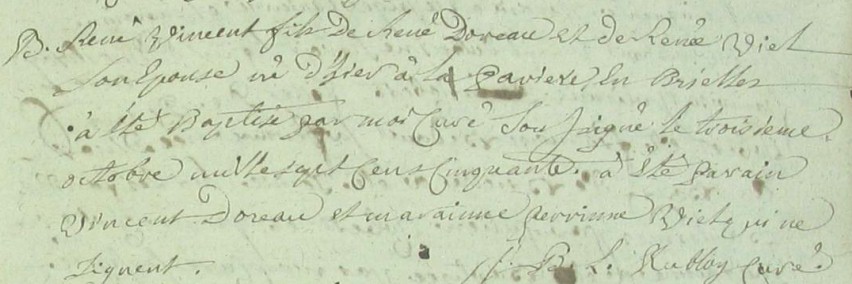 B. René Vincent fils De René Doreau et de Renée Viel
son Epouse né d'hier à la Paviere En Brielles
a été Baptisé par moi Curé Sou signé le troisieme
octobre mille sept Cens Cinquante. a été parain
Vincent Doreau et marainne perrinne Viel qui ne
signent. J. B. L. Rubloy Curé